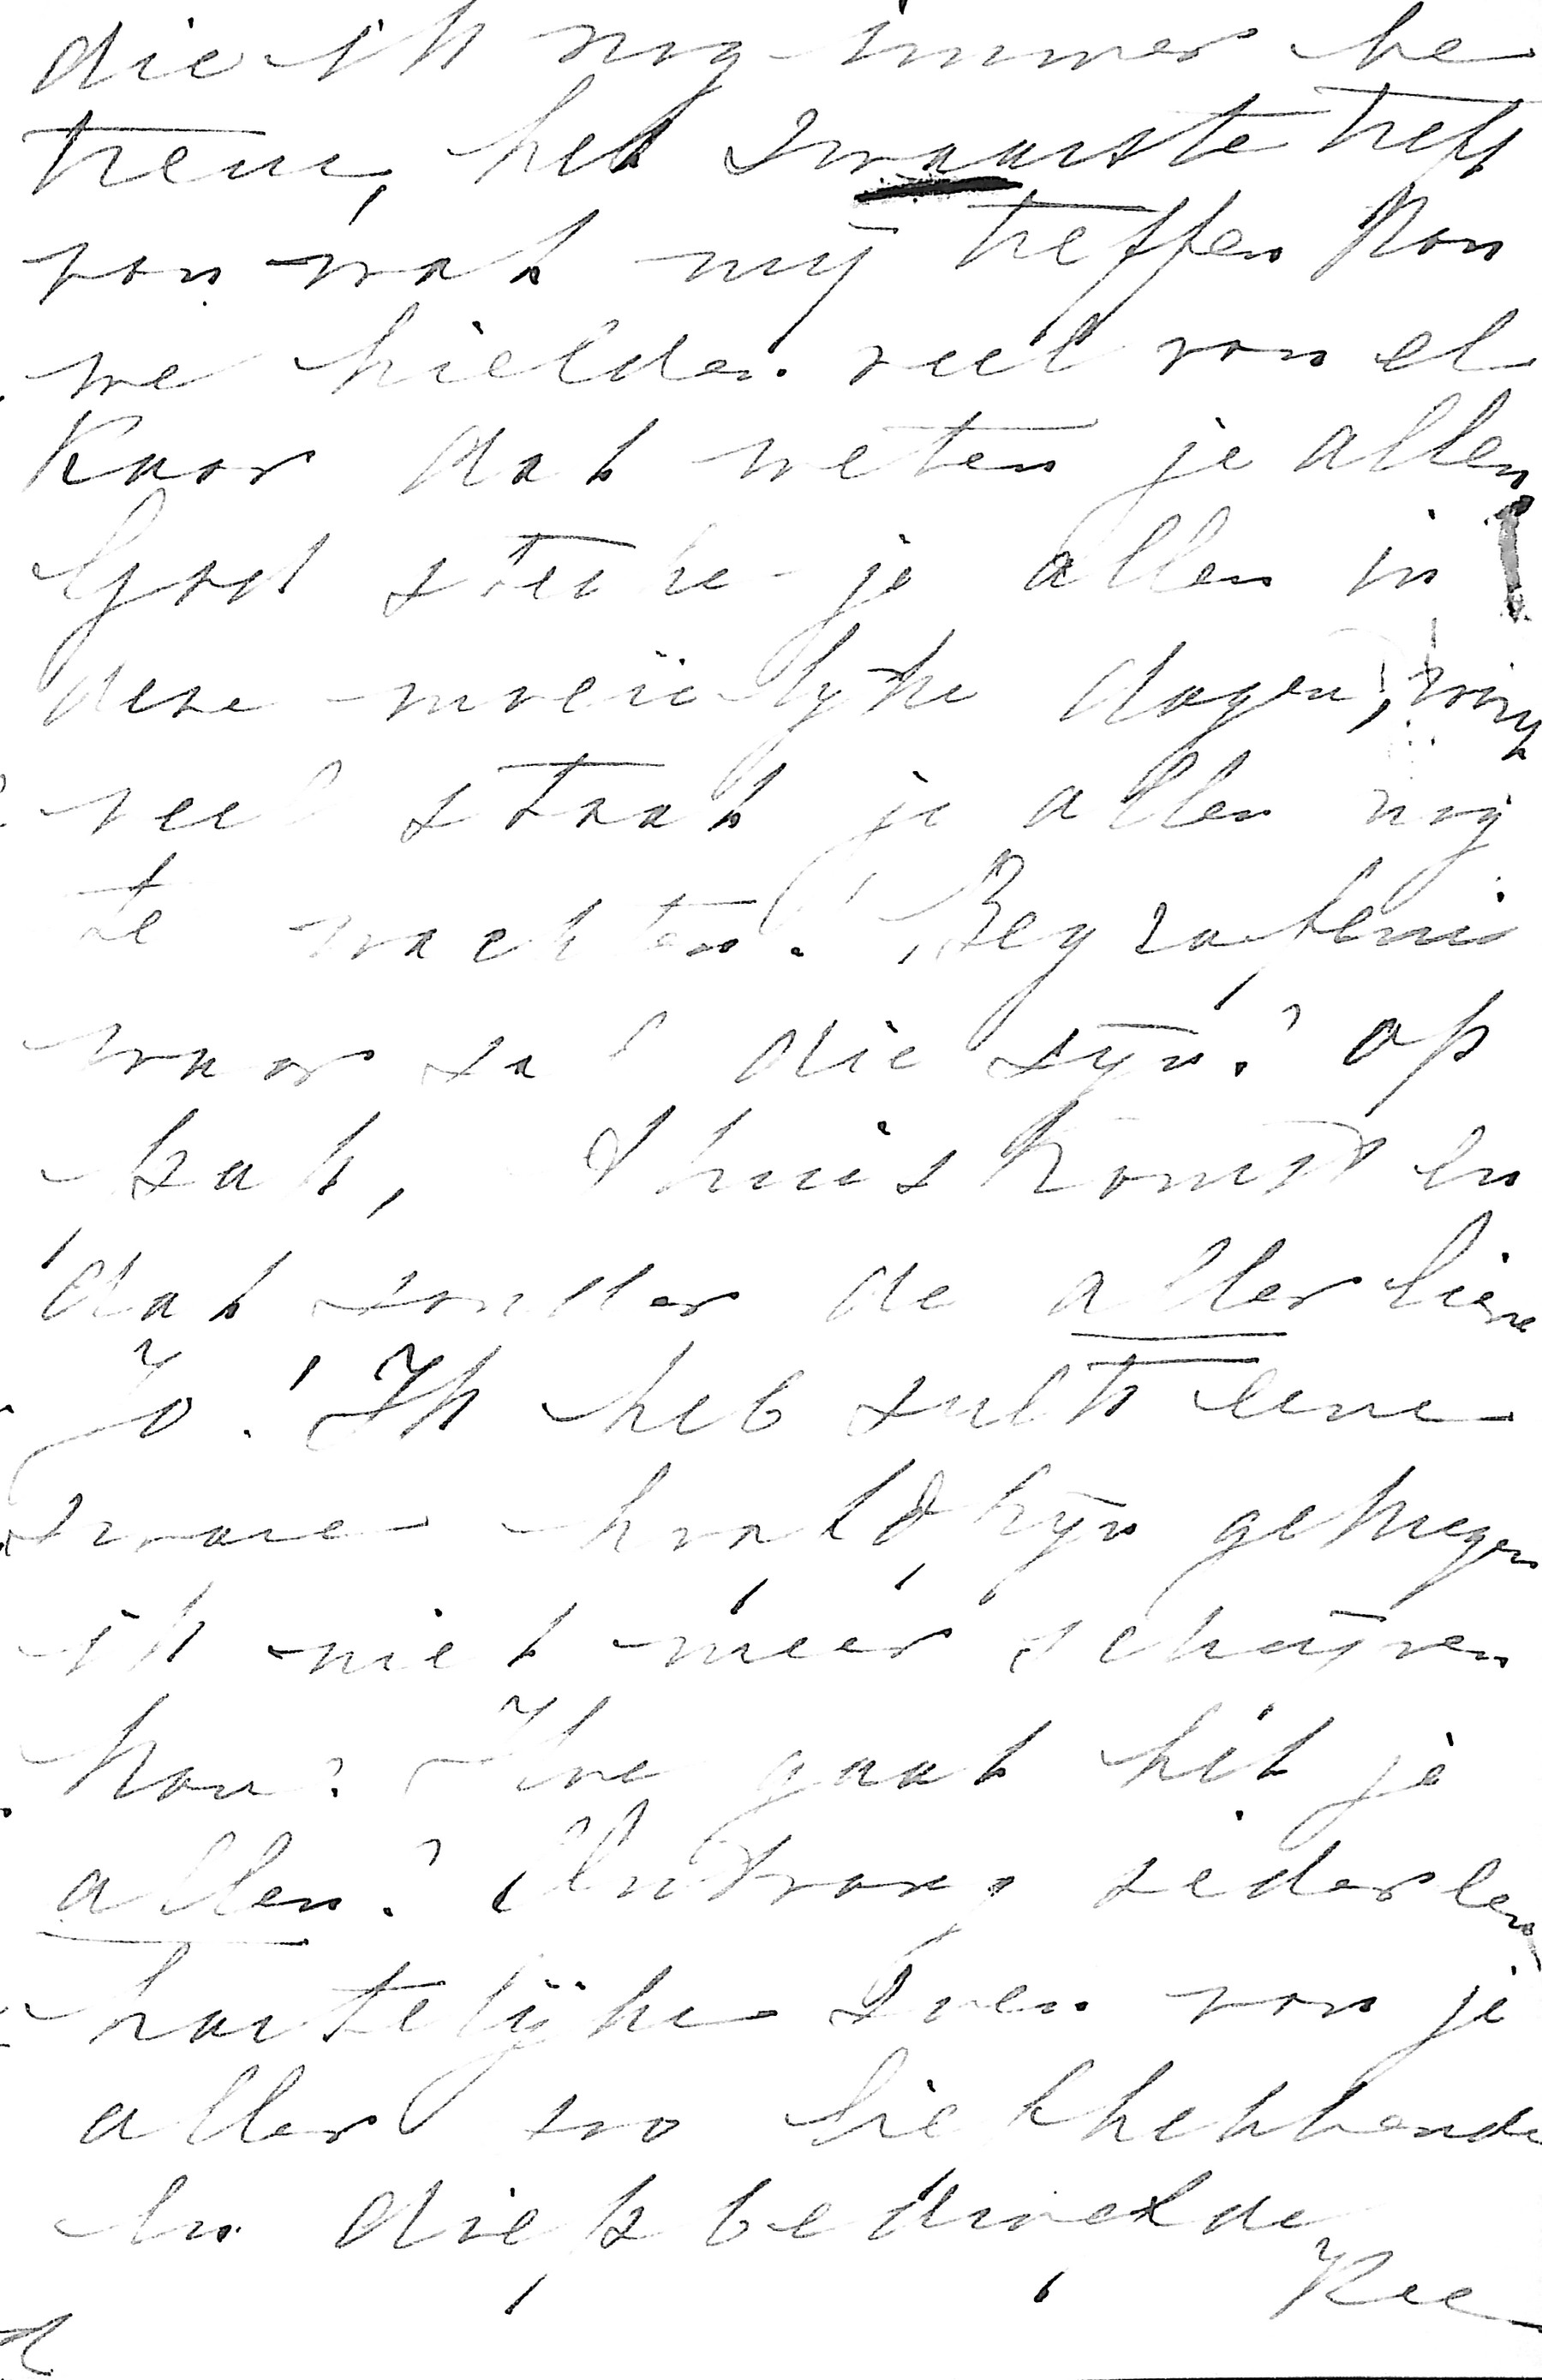 die ik nog immer be
treur, het zwaarste treft
van wat mij treffen kon
we hielden veel van el
kaar dat weten je allen
God sterke je allen in
deze moeielijke dagen,
veel staat je allen nog
te wachten! Begrafenis
waar zal die zijn? op
pak, thuiskomst en
dat zonder de aller lieve
Jo! Ik heb zulk eene
zware hoofdpijn gekregen
ik niet meer schrijven
kan! Hoe gaat het je
allen? Ontvang ieder een
hartelijke zoen van je
aller zoo liefhebbende
en diep bedroefde